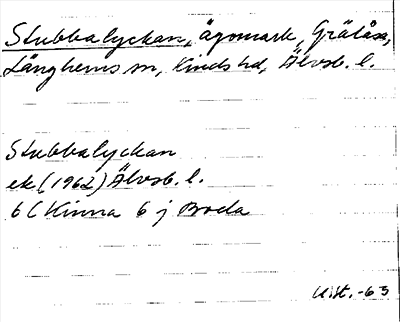 Stubbalyckan, ägomark, Gråtåsa,
Länghems sn, Kinds hd, Älvsb. l.
Stubbalyckan
ek (1962) Älvsb. l.
6 C Kinna 6 j Broda
U.H. -63